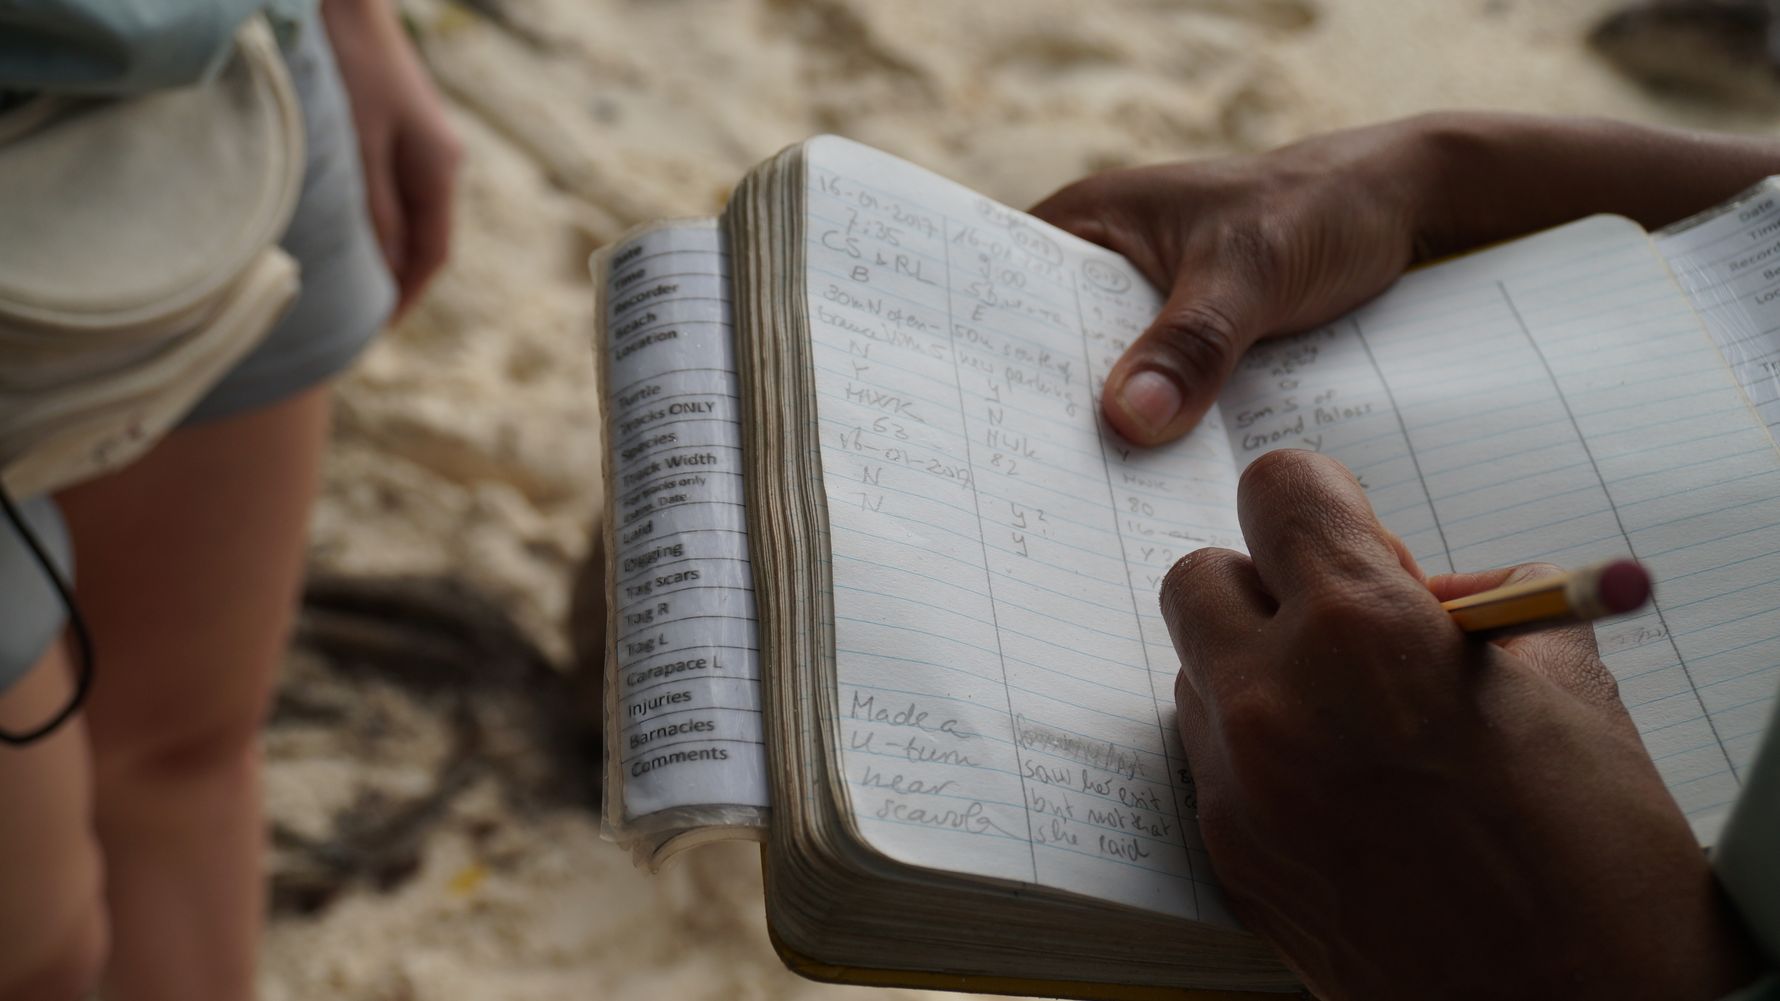 Date
Time
Recorder
Beach
Location
Turtle
Tracks ONLY
Species
Track Width
For tracks only
Estim. Date
Laid
Digging
Tag scars
Tag R
Tag L
Carapace L
Injuries
Barnacles
Comments
16-01-2017
7:35
CS & RL
B
30m N of en-
trance Villa 5
N
Y
HWK
63
16-01-2017
N
N
Made a
U-turn
near
scavola
16-01-2017
9:00
E
50m south of
new parking
Y
N
HWK
82
Y?
Y
saw her exit
but not that
she laid
Y
HWK
80
16-01-201
Y?
5m S of
Grand Palass
Y
Date
Time
Record
Be
Loc